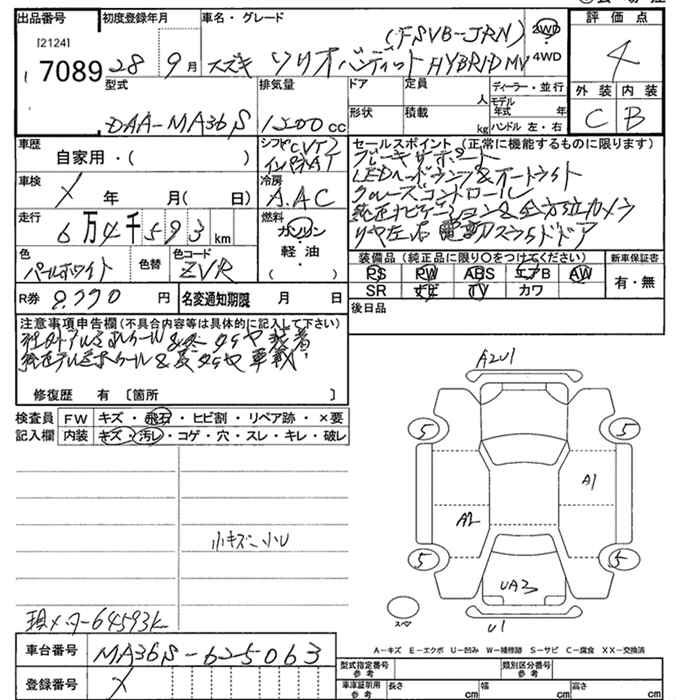 出品番号 初度登録年月 車名・グレード 評価点
[2124]
7089 28 9月 スズキ ソリオ バンディット HYBRID MV (FSVB-JRN) 2WD・4WD 4
型式 排気量 ドア 定員 人 ディーラー・並行 外装 内装
DAA-MA36S 1200cc 形状 積載 kg モデル年式 年 ハンドル 左・右 C B
車歴 自家用・( ) シフト CVT インパネAT セールスポイント (正常に機能するものに限ります)
ブレーキサポート
車検 X 年 月( 日) 冷房 A.AC LEDヘッドランプ&オートライト
クルーズコントロール
走行 6万4千593km 燃料 ガソリン・軽油・( ) 純正ナビゲーション&全方位カメラ
リヤ左右電動スライドドア
色 パールホワイト 色替 色コード ZVR 装備品 (純正品に限り○をつけてください) 新車保証書
PS PW ABS エアB AW 有・無
SR ナビ TV カワ
R券 9,990円 名変通知期限 月 日 後日品
注意事項申告欄(不具合内容等は具体的に記入して下さい)
社外アルミホイール&冬タイヤ装着
純正アルミホイール&夏タイヤ車載
修復歴 有〔箇所 〕
検査員 FW キズ・飛石・ヒビ割・リペア跡・×要
記入欄 内装 キズ・汚レ・コゲ・穴・スレ・キレ・破レ
A2U1
5 5
A1
A2
小キズ、小U
5 5
UA3
スペア
U1
現メーター64593k
A-キズ E-エクボ U-凹み W-補修跡 S-サビ C-腐食 XX-交換済
車台番号 MA36S-625063
型式指定番号 参考 類別区分番号 参考
登録番号 X
車庫証明用 参考 長さ cm 幅 cm 高さ cm